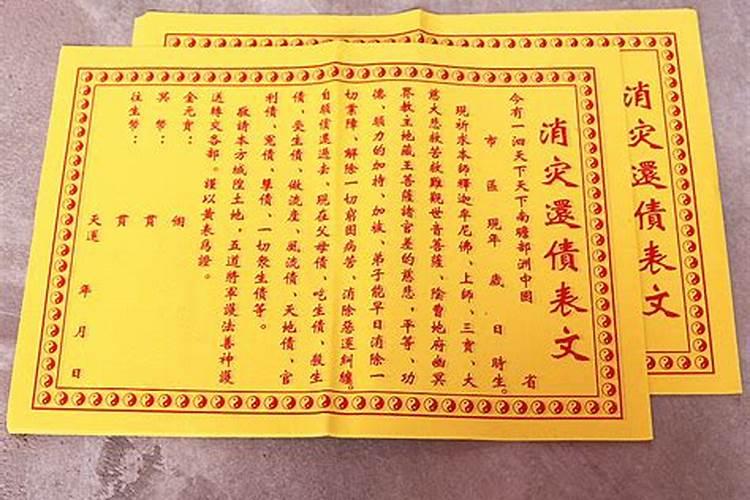 消灾還債表文
今有一泗天下天下南贍部洲中國 省
市 區 現年 歲 日 時生。
現祈求本師釋迦牟尼佛、上師、三寶、大
慈大悲救苦救難觀世音菩薩、陰曹地府幽冥
界教主地藏王菩薩諸官差的慈悲，平等、功
德、願力的加持、加被、弟子能早日消除一
切業障、解除一切窮困病苦、消除惡運糾纏。
自願償還過去、現在父母債、吃生債、殺生
債、受生債、做流產、風流債、天地債、官
利債、冤債、孽債、一切衆生債等。
敬請本方城隍土地，五道將軍護法善神護
送轉交各部。謹以黄表爲證。
金元寳： 個
冥幣： 貫
往生幣： 貫
天運 年 月 日
消灾還債表文